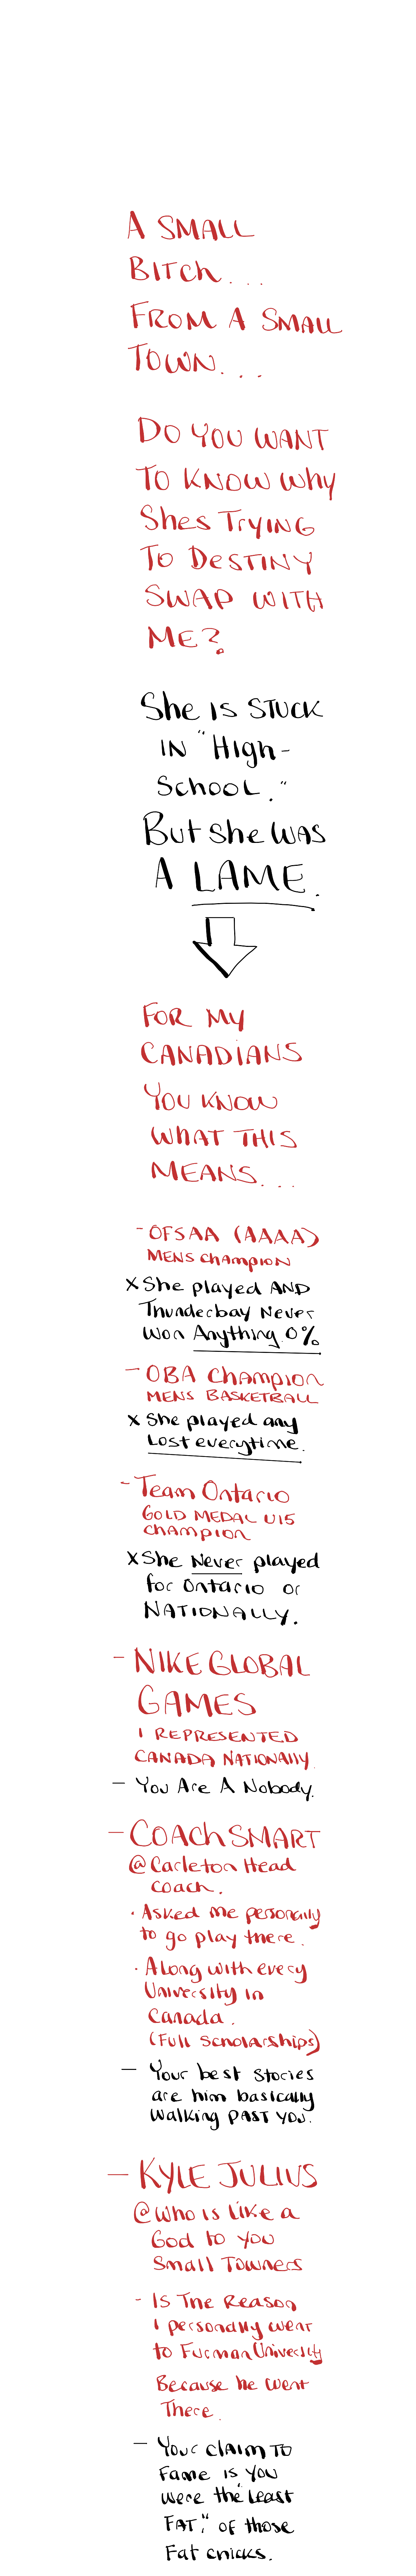 A SMALL
BITCh...
FROM A SMALL
TOWN...
DO YOU WANT
TO KNOW Why
Shes TrYING
To DeSTINY
SWAP WITH
ME?
She IS STUCK
IN "HIgh-
SchooL."
But she WAS
A LAME.
FOR MY
CANADIANS
YOU KNOW
WhAT THIS
MEANS...
- OFSAA (AAAA)
MENS ChAmpION
X She played AND
Thunderbay Never
Won Anything. 0%
- OBA Champion
MENS BASKETBALL
X She played any
Lost everytime.
- Team Ontario
GOLD MEDAL U15
Champion
X She Never played
for Ontario or
NATIONALLY.
- NIKE GLOBAL
GAMES
I REPRESENTED
CANADA NATIONAlly
- You Are A Nobody.
- COACh SMART
@Carleton Head
Coach.
· Asked me personally
to go play there.
· Along with every
University in
Canada.
(Full Scholarships)
- Your best Stories
are him basically
Walking PAST YOU.
- KYLE JULIUS
@Who is Like a
God to you
Small Towners
- Is The Reason
I personally went
to Furman University
Because he went
There.
- Your CLAIM TO
Fame is YOU
were the "Least
FAT," of those
Fat chicks.